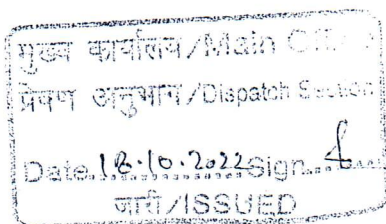 मुख्य कार्यालय/Main
प्रेषण अनुभाग/Dispatch Section
Date 18.10.2022 Sign
जारी/ISSUED